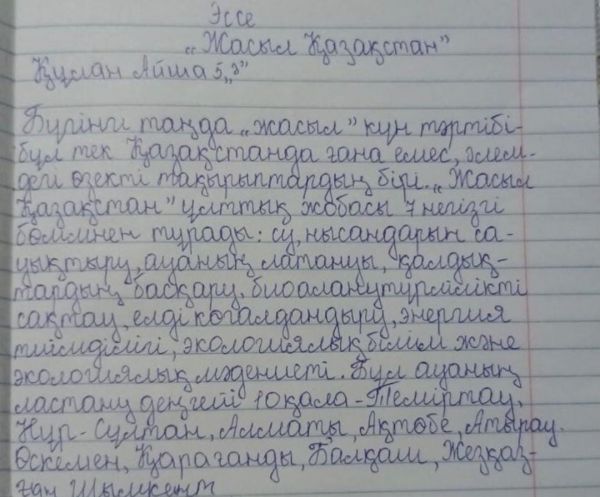 Эссе
„Жасыл Қазақстан"
Құлан Айша 5„з"
Бүгінгі таңда „жасыл" күн тәртібі-
бұл тек Қазақстанда ғана емес, әлем-
дегі өзекті тақырыптардың бірі. „Жасыл
Қазақстан" ұлттық жобасы 7 негізгі
бөлімнен тұрады: су, нысандарын са-
уықтыру, ауаның латануы, қалдық-
тардың басқару,
сақтау, елді көгалдандыру, энергия
тиімділігі, экологиялық білім және
экологиялық мәдениеті. Бұл ауаның
ластану деңгейі 10 қала - Теміртау,
Нұр-Сұлтан, Алматы, Ақтөбе, Атырау.
Өскемен, Қарағанды, Балқаш, Жезқаз-
ған Шымкент